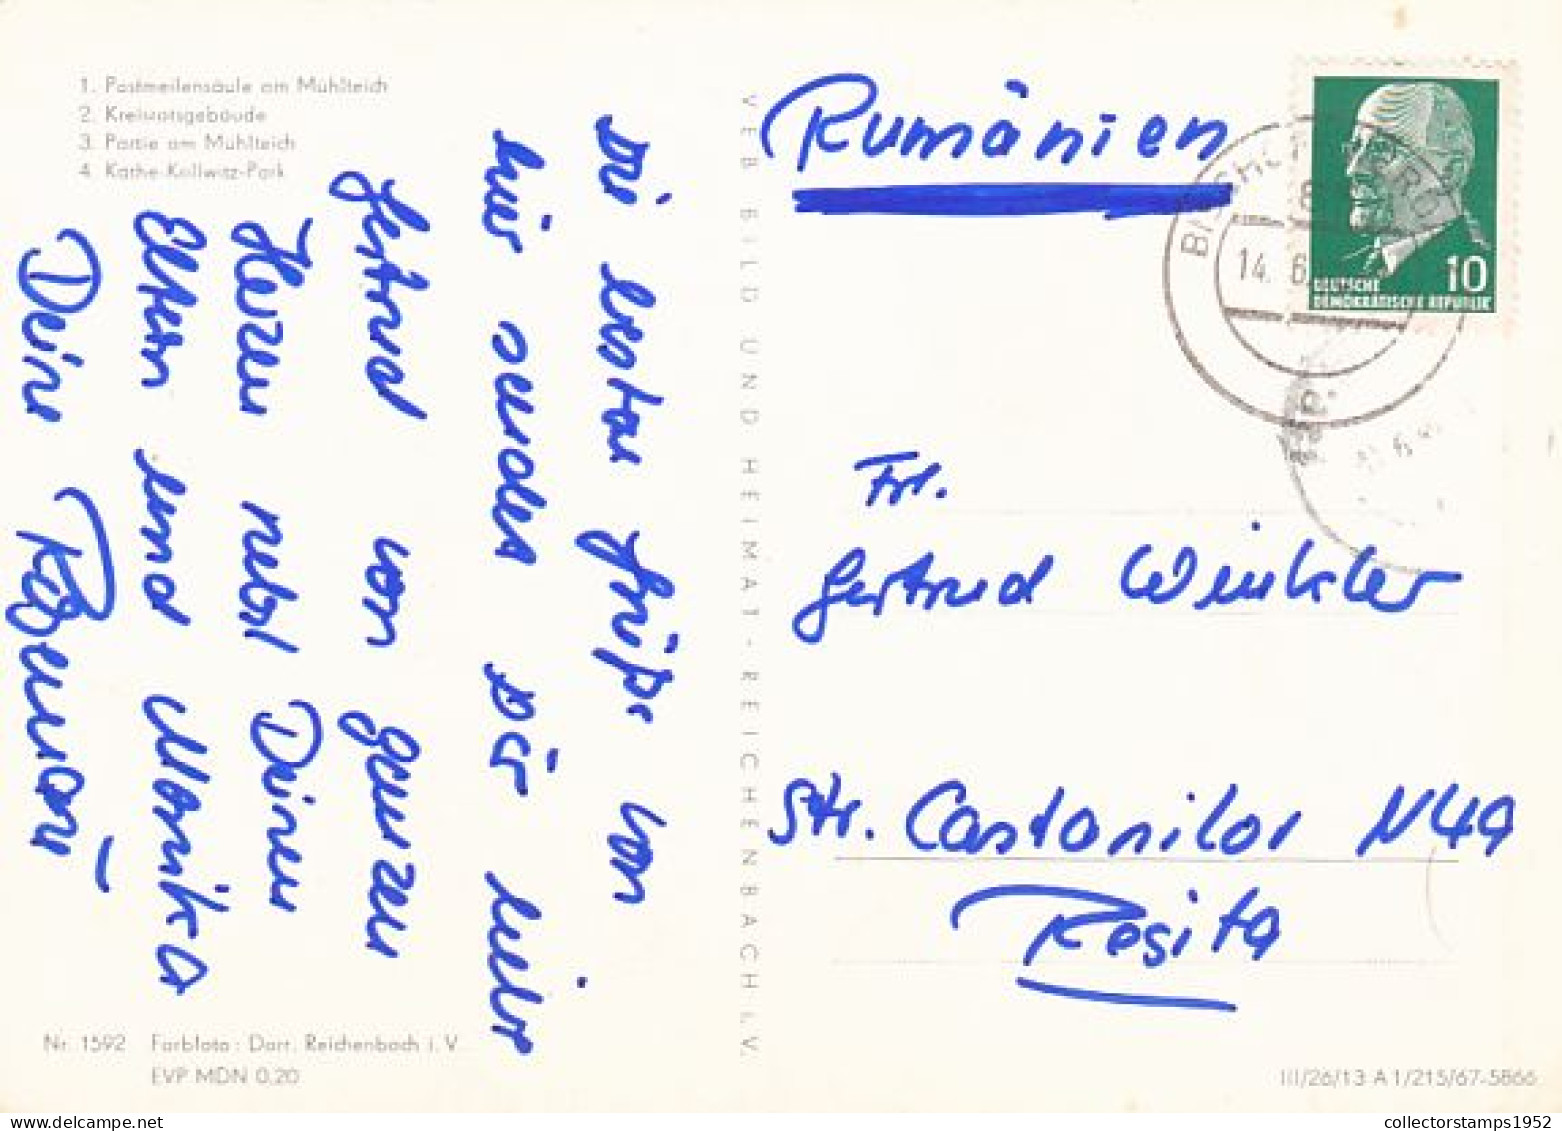 1. Postmeilensäule am Mühlteich
2. Kreisratsgebäude
3. Partie am Mühlteich
4. Käthe-Kollwitz-Park
Die besten Grüße von
hier sendet Dir liebe
Gertrud von ganzen
Herzen nebst Deinen
Eltern und Monika
Deine
Nr. 1592 Farbfoto: Darr, Reichenbach i. V.
EVP MDN 0,20
VEB BILD UND HEIMAT - REICHENBACH I. V.
Rumänien
14. 6.
10
DEUTSCHE
DEMOKRATISCHE REPUBLIK
Frl.
Gertrud Winkler
Str. Castanilor N49
Resita
III/26/13 A 1/215/67-5866
collectorstamps1952